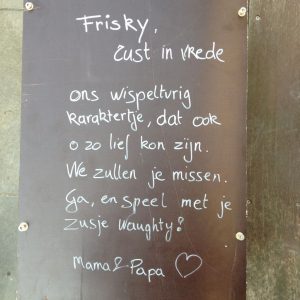 Frisky,
rust in vrede
ons wispelturig
karaktertje, dat ook
o zo lief kon zijn.
We zullen je missen.
Ga, en speel met je
zusje Waughty!
Mama & Papa ♡